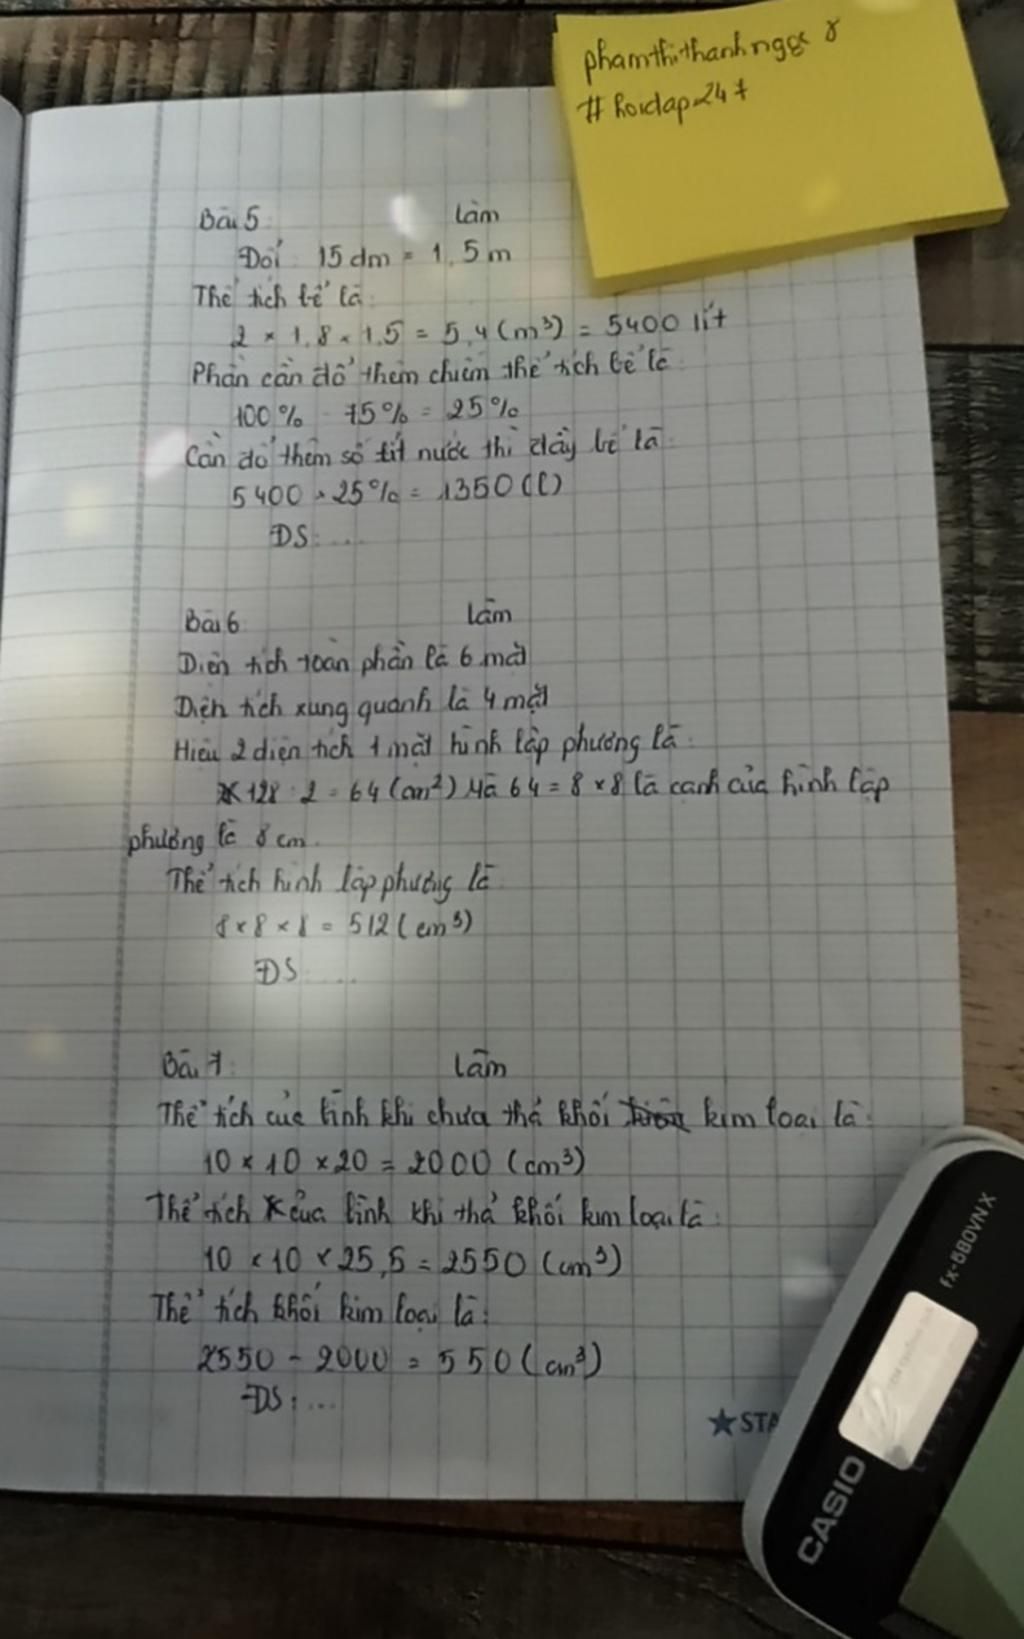 phamthithanhngoc8
# hoidap247
Bài 5: Làm
Đổi: 15 dm = 1,5 m
Thể tích bể là:
2 × 1,8 × 1,5 = 5,4 (m³) = 5400 lít
Phần cần đổ thêm chiếm thể tích bể là
100% - 75% = 25%
Cần đổ thêm số lít nước thì đầy bể là:
5400 × 25% = 1350 (l)
ĐS: ...
Bài 6 Làm
Diện tích toàn phần là 6 mặt
Diện tích xung quanh là 4 mặt
Hiệu 2 diện tích 1 mặt hình lập phương là:
128 : 2 = 64 (cm²) Mà 64 = 8 × 8 là cạnh của hình lập
phương là 8 cm.
Thể tích hình lập phương là
8 × 8 × 8 = 512 (cm³)
ĐS: ....
Bài 7: Làm
Thể tích của bình khi chưa thả khối kim loại là:
10 × 10 × 20 = 2000 (cm³)
Thể tích của bình khi thả khối kim loại là:
10 × 10 × 25,5 = 2550 (cm³)
Thể tích khối kim loại là:
2550 - 2000 = 550 (cm³)
ĐS: ...
★STA
fx-580VNX
CASIO